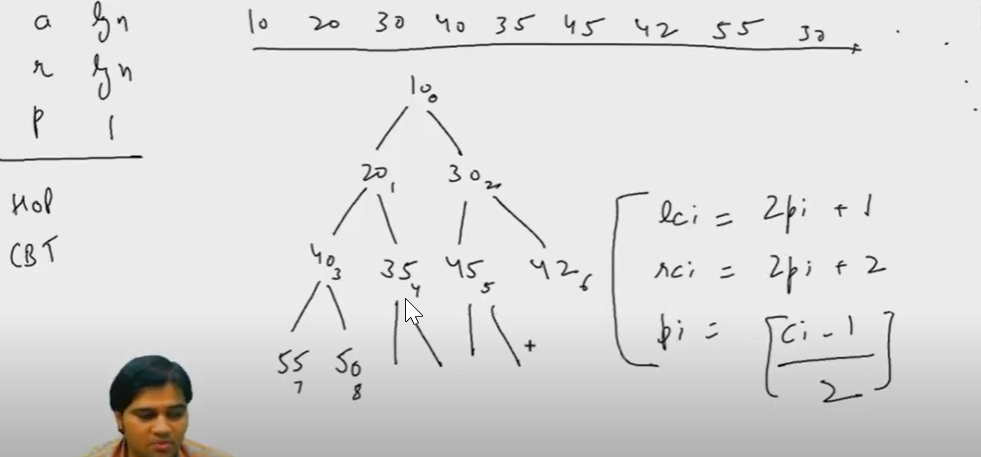 a lgn
r lgn
p 1
HOP
CBT
10 20 30 40 35 45 42 55 30
10 0
20 1 30 2
40 3 35 4 45 5 42 6
55 7 50 8
lci = 2pi + 1
rci = 2pi + 2
pi = [ci - 1 / 2]